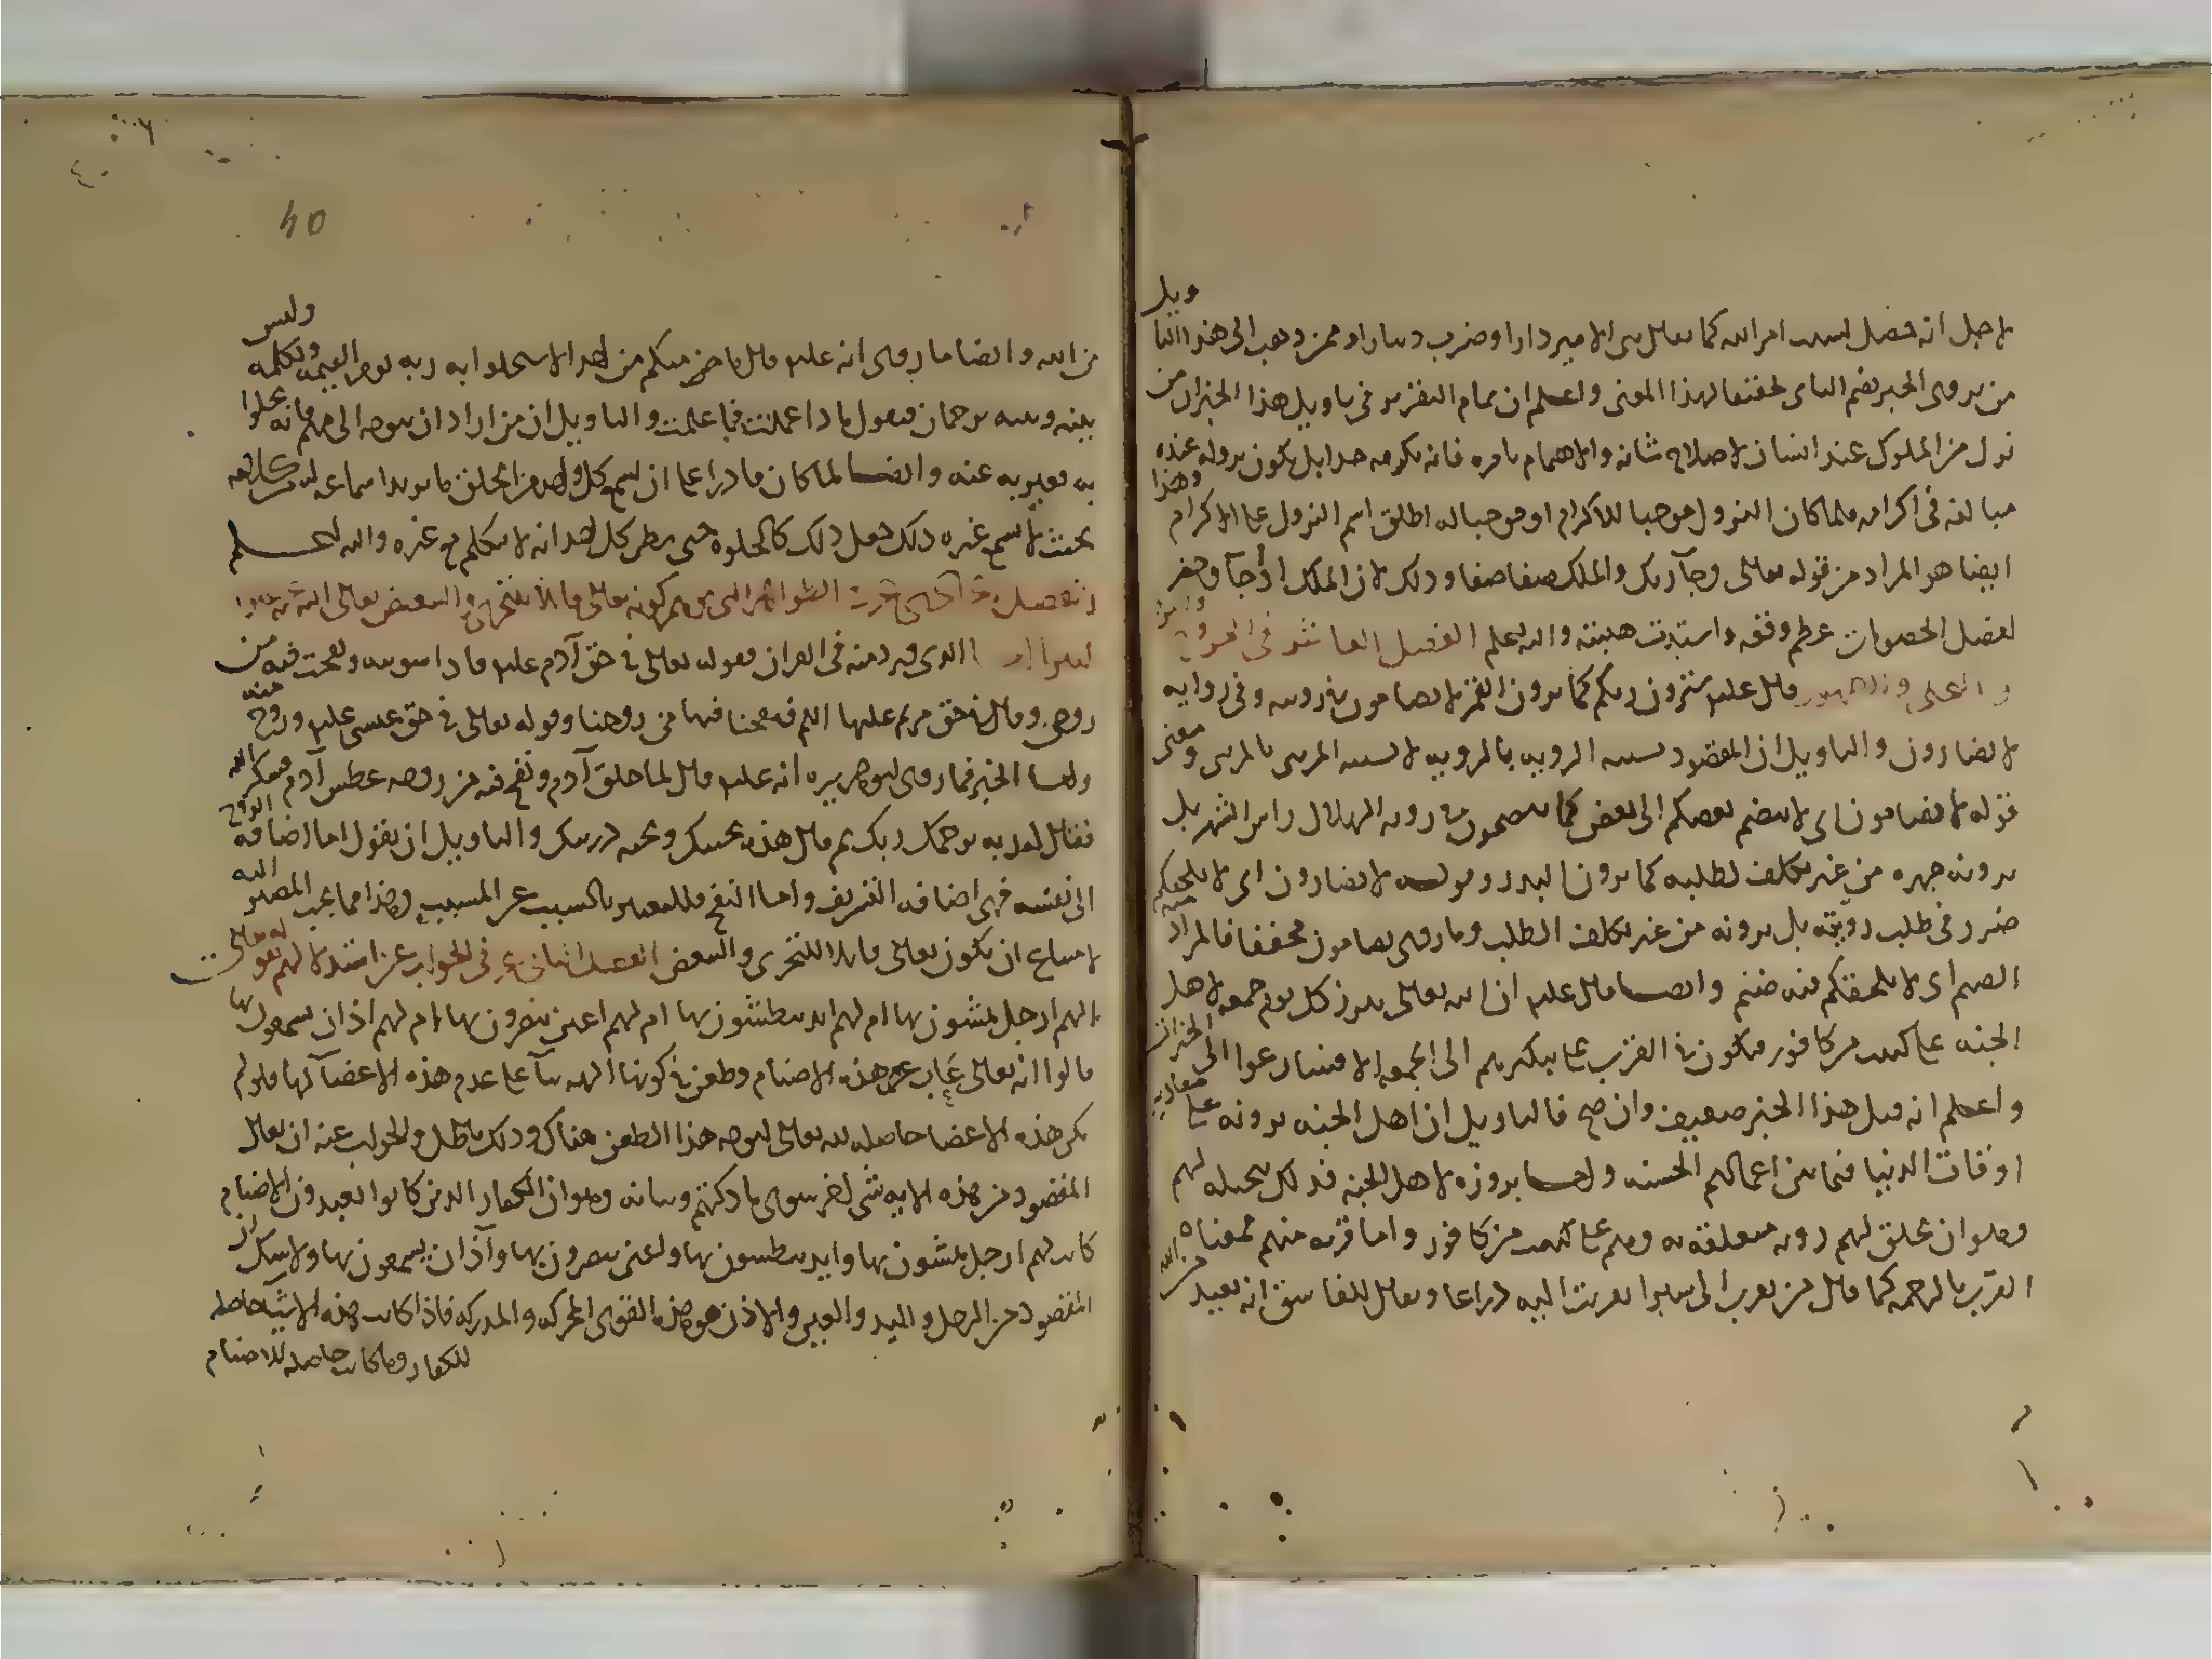 لاجل انه حصل بسبب امر الله كما يقال بنى الامير دارا وضرب دينارا وممن ذهب الى هذا التاويل
من يروى الخبر بضم الياء تحقيقا لهذا المعنى واعلم ان تمام التقرير فى تاويل هذا الخبر ان من
نزل من الملوك عند انسان لاصلاح شانه والاهتمام بامره فانه يكرمه جدا بل يكون نزوله عنده
مبالغة فى اكرامه فلما كان النزول موجبا للاكرام او موجبا له اطلق اسم النزول على الاكرام وهذا
ايضا هو المراد من قوله تعالى وجاء ربك والملك صفا صفا وذلك لان الملك اذا جاء وحضر
لفصل الخصومات عظم وقعه واشتدت هيبته والله اعلم الفصل العاشر فى الخروج
قال عليه سترون ربكم كما ترون القمر لا تضامون فى رويته وفى رواية
لا تضارون والتاويل ان المقصود تشبيه الروية بالروية لا تشبيه المرئى بالمرئى ومعنى
قوله لا تضامون اى لا ينضم بعضكم الى بعض كما تنضمون فى روية الهلال راس الشهر بل
ترونه جهرة من غير تكلف لطلبه كما ترون البدر وقوله لا تضارون اى لا يلحقكم
ضرر فى طلب رويته بل ترونه من غير تكلف الطلب وما روى تضامون مخففا فالمراد منه
الضيم اى لا يلحقكم فيه ضيم وايضا قال عليه ان الله تعالى يبرز كل يوم جمعة لاهل
الجنة على كثيب من كافور فيكون فى القرب على تبكيرهم الى الجمعة الا فسارعوا الى الخيرات
واعلم انه قيل هذا الخبر ضعيف وان صح فالتاويل ان اهل الجنة يرونه على مقادير
اوقات الدنيا فيما بين اعمالهم الحسنة واما بروزه لاهل الجنة فذلك بتجليه لهم
وهو ان يخلق لهم روية متعلقة به وهم على كثيب من كافور واما قربه منهم فمعناه
القرب بالرحمة كما قال من تقرب الى شبرا تقربت اليه ذراعا ويقال للفاسق انه بعيد من الله
40
من الله وايضا ما روى انه عليه قال ما منكم من احد الا سيخلوا به ربه يوم القيمة ويكلمه وليس
بينه وبينه ترجمان فيقول ماذا عملت فيما علمت والتاويل ان من اراد ان يتوجه الى مهم فانه يخلوا
به فعبر به عنه وايضا لما كان قادرا على ان يسمع كل واحد من الخلق ما يريد اسماعه
بحيث لا يسمع غيره ذلك جعل ذلك كالخلوة حتى يظن كل احد انه لا يتكلم مع غيره والله اعلم
الظواهر التى توهم كونه تعالى قابلا للتجزى والتبعيض تعالى الله عنه
الذى ورد منه فى القران فقوله تعالى فى حق آدم عليه فاذا سويته ونفخت فيه من
روحى وقال فى حق مريم عليها السلم فنفخنا فيها من روحنا وقوله تعالى فى حق عيسى عليه وروح منه
واما الخبر فما روى ابو هريره انه عليه قال لما خلق آدم ونفخ فيه من روحه عطس آدم فشكر الله
فقال له ربه يرحمك ربك ثم قال هذه تحيتك وتحية ذريتك والتاويل ان نقول اما اضافة الروح
الى نفسه فهى اضافة التشريف واما النفخ فللتعبير بالسبب عن المسبب وهذا مما يجب المصير اليه
لامتناع ان يكون تعالى قابلا للتجزى والتبعض الفصل الثانى عشر فى الجواب عن استدلالهم بقوله تعالى
الهم ارجل يمشون بها ام لهم ايد يبطشون بها ام لهم اعين يبصرون بها ام لهم اذان يسمعون بها
قالوا انه تعالى عاب هذه الاصنام وطعن فى كونها الهة بناء على عدم هذه الاعضاء لها فلو لم
تكن هذه الاعضا حاصله لله تعالى لتوجه هذا الطعن هناك وذلك باطل والجواب عنه ان يقال
المقصود من هذه الاية شى اخر سوى ما ذكرتم وبيانه وهو ان الكفار الذين كانوا يعبدون الاصنام
كانت لهم ارجل يمشون بها وايد يبطشون بها واعين يبصرون بها وآذان يسمعون بها ولا شك ان
المقصود من الرجل واليد والعين والاذن هو هذه القوى المحركه والمدركه فاذا كانت هذه الاشيا حاصله
للكفار وما كانت حاصله للاصنام